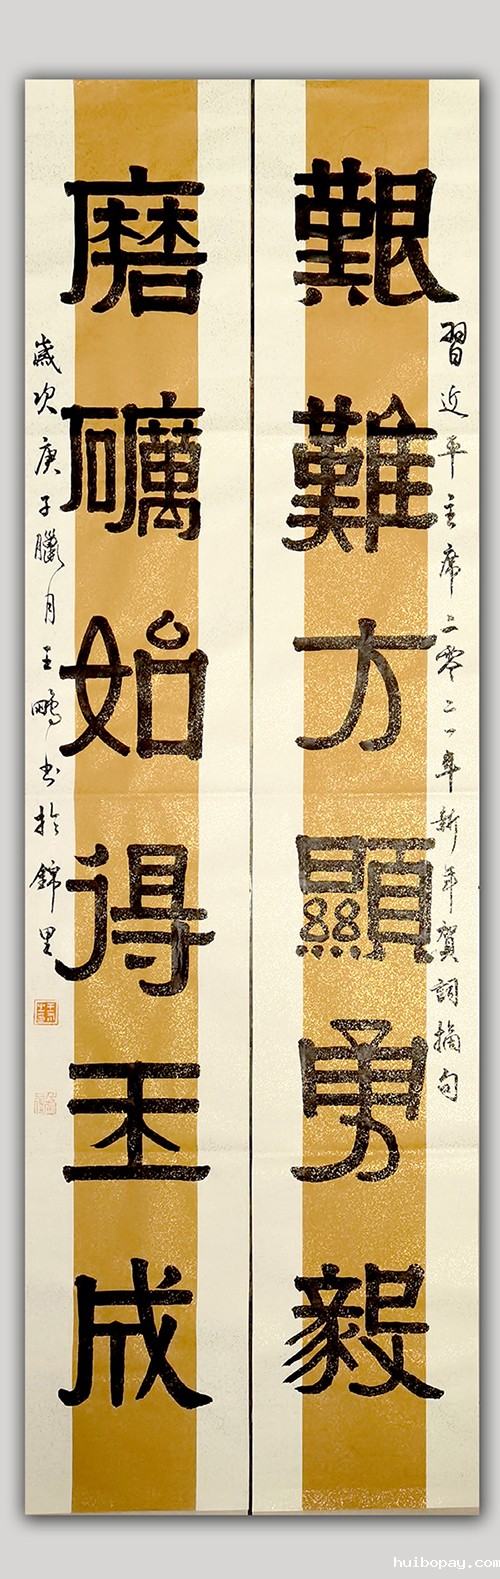 習近平主席二零二一年新年賀詞摘句
艱難方顯勇毅
磨礪始得玉成
歲次庚子臘月王鵬书於錦里
huibopay.com